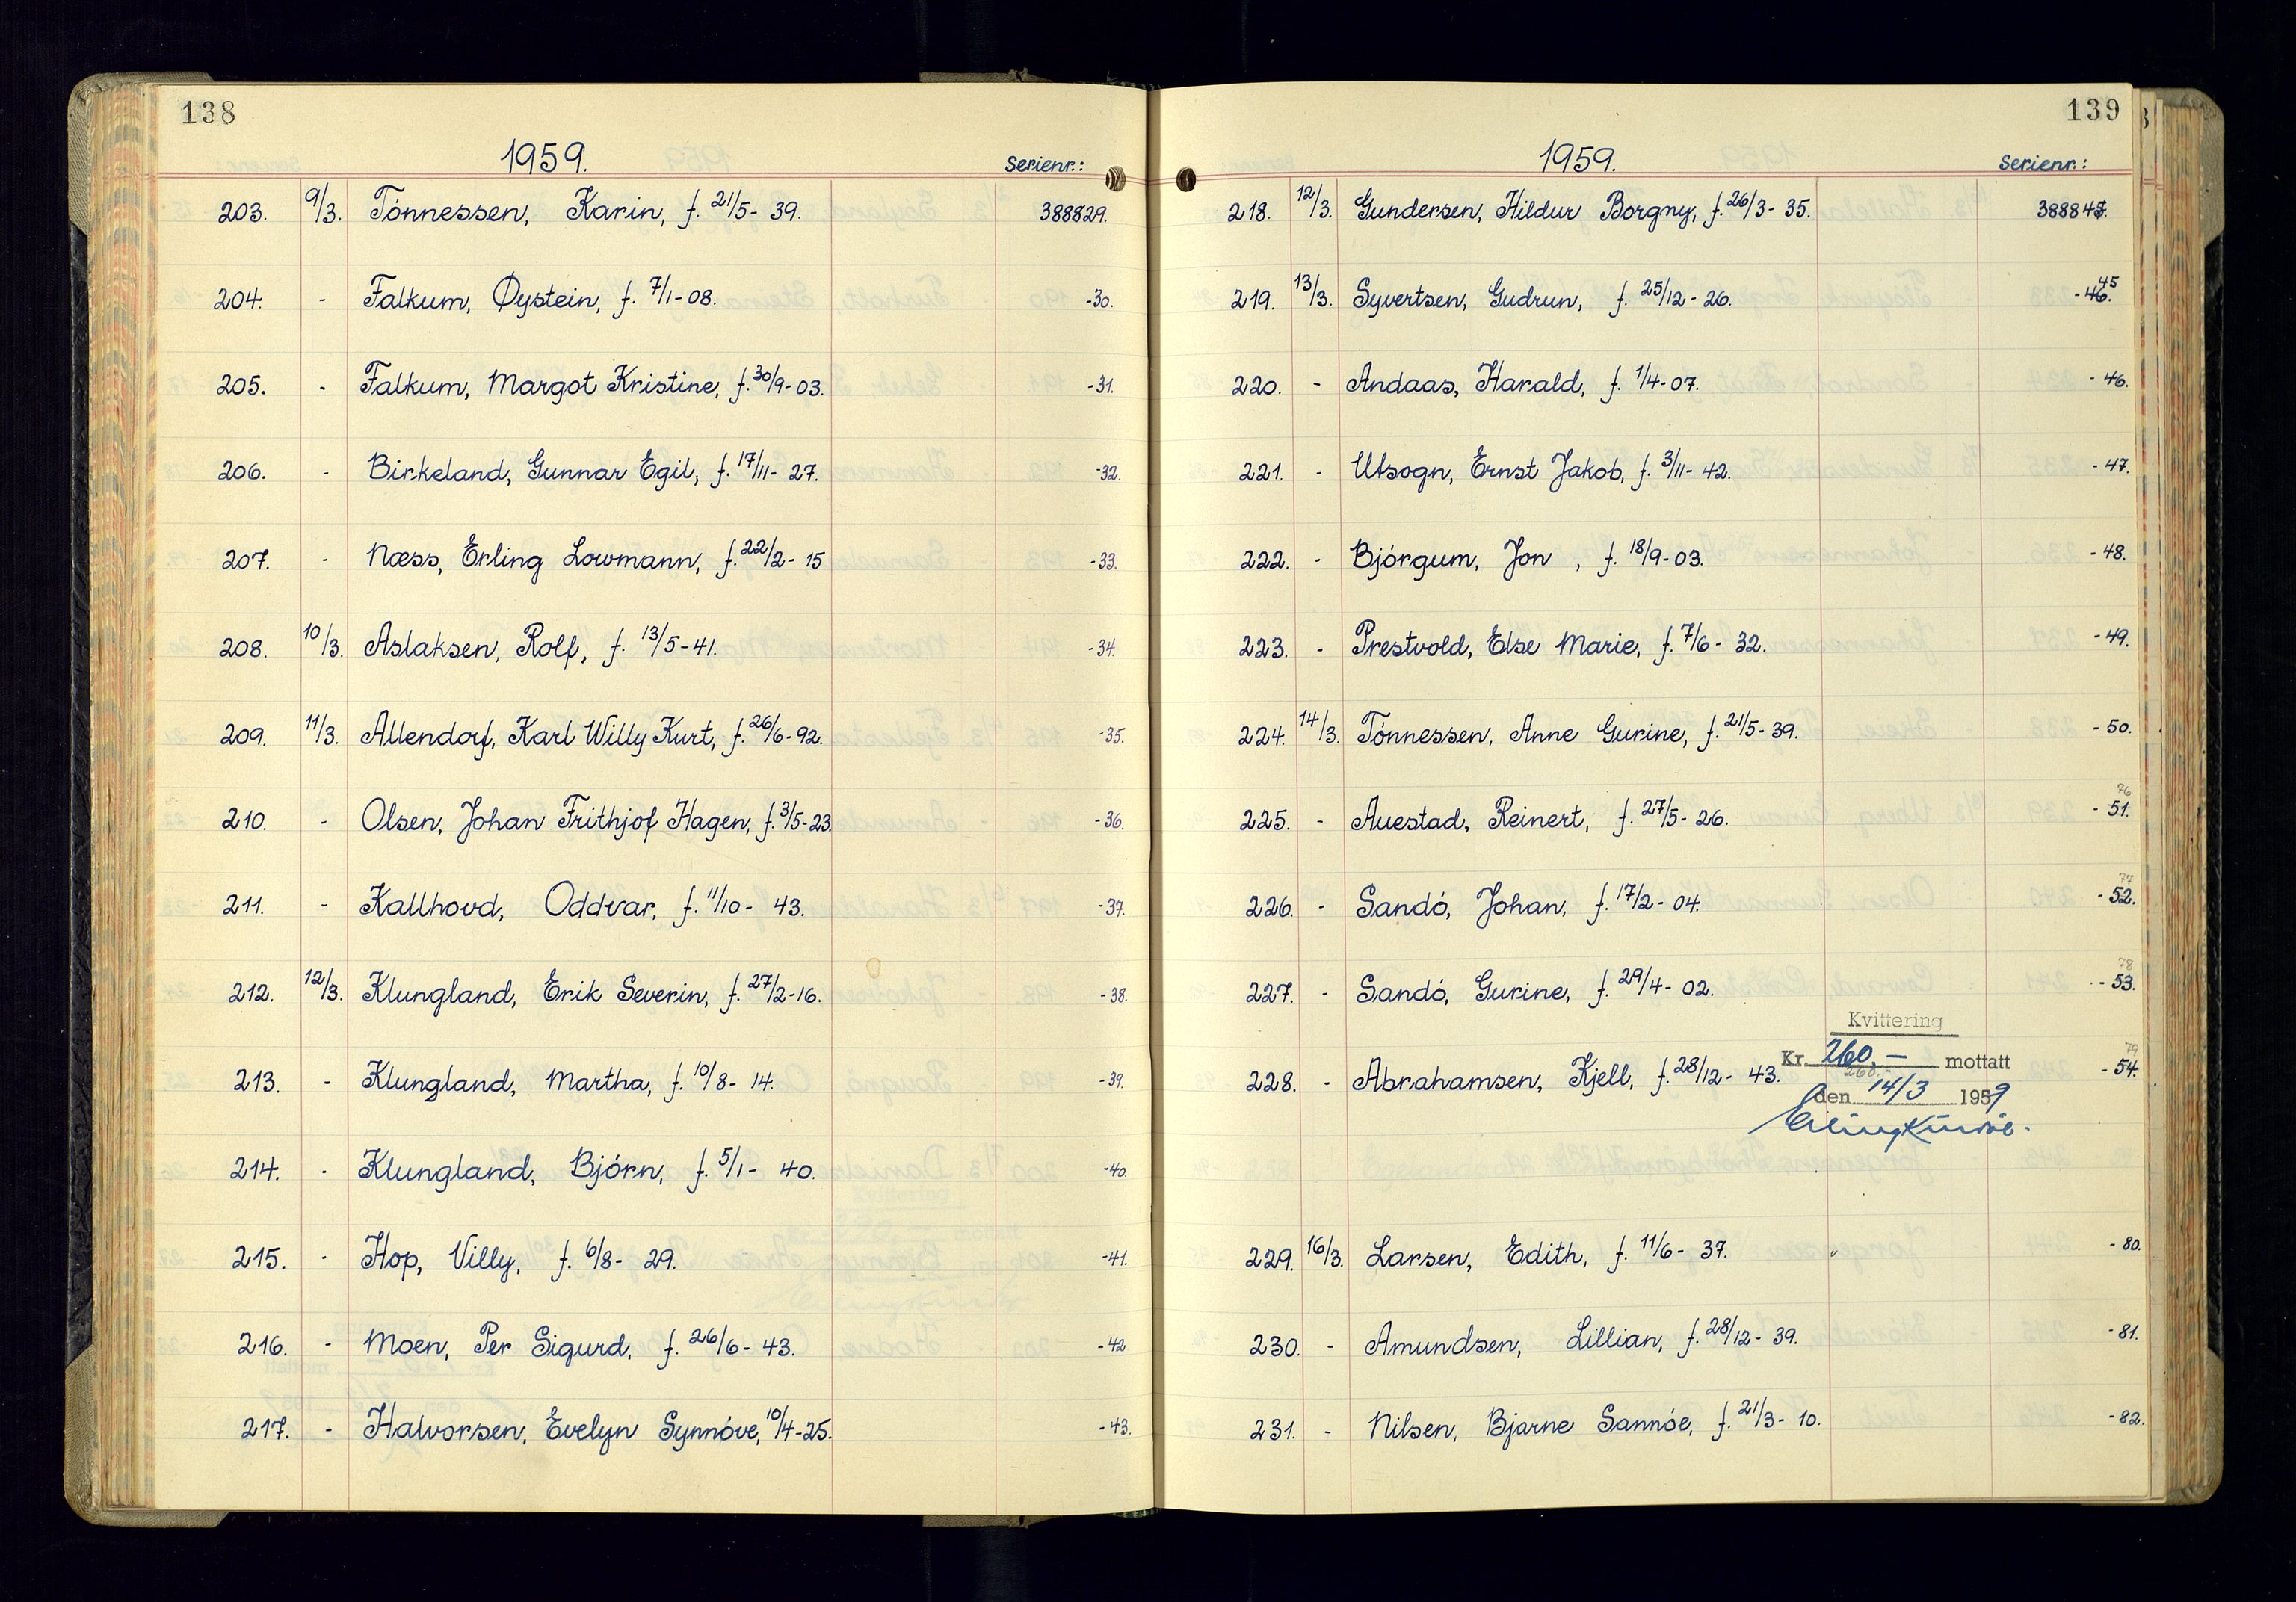 138
1959.
Serienr.:
203. 9/3. Tónnessen, Karin, f. 21/5- 39. 388829.
204. - Falkum, Øystein, f. 7/1-08. -30.
205. - Falkum, Margot Kristine, f. 30/9-03. -31.
206. - Birkeland, Gunnar Egil, f. 17/11- 27. -32.
207. - Næss, Erling Lowmann, f. 22/2- 15 -33.
208. 10/3. Aslaksen, Rolf, f. 13/5-41. -34.
209. 11/3. Allendorf, Karl Willy Kurt, f. 26/6-92. -35.
210. - Olsen, Johan Frithjof Hagen, f. 3/5-23. -36.
211. - Kallhovd, Oddvar, f. 11/10- 43. -37.
212. 12/3. Klungland, Erik Severin, f. 27/2-16. -38.
213. - Klungland, Martha, f. 10/8- 14. -39.
214. - Klungland, Bjórn, f. 5/1- 40. -40.
215. - Hop, Villy, f. 6/8- 29. -41.
216. - Moen, Per Sigurd, f. 26/6- 43. -42
217. - Halvorsen, Evelyn Synnóve, 10/4-25. -43.
139
1959.
Serienr.:
218. 12/3. Gundersen, Hildur Borgny, f. 26/3- 35. 38884
219. 13/3. Syvertsen, Gudrun, f. 25/12- 26. -46. 45
220. - Andaas, Harald, f. 1/4-07. -46.
221. - Utsogn, Ernst Jakob, f. 3/11- 42. -47.
222. - Bjórgum, Jon , f. 18/9-03. -48.
223. - Prestvold, Else Marie, f. 7/6- 32. -49.
224. 14/3. Tónnessen, Anne Gurine, f. 21/5-39. -50.
225. - Auestad, Reinert, f. 27/5- 26. -51. 76
226. - Sandó, Johan, f. 17/2- 04. -52. 77
227. - Sandó, Gurine, f. 29/4- 02. -53. 78
Kvittering
228. - Abrahamsen, Kjell, f. 28/12- 43. Kr. 260,- mottatt -54. 79
260.-
den 14/3 1959
229. 16/3. Larsen, Edith, f. 11/6- 37. -80.
230. - Amundsen, Lillian, f. 28/12- 39. -81.
231. - Nilsen, Bjarne Sannóe, f. 21/3- 10. -82.